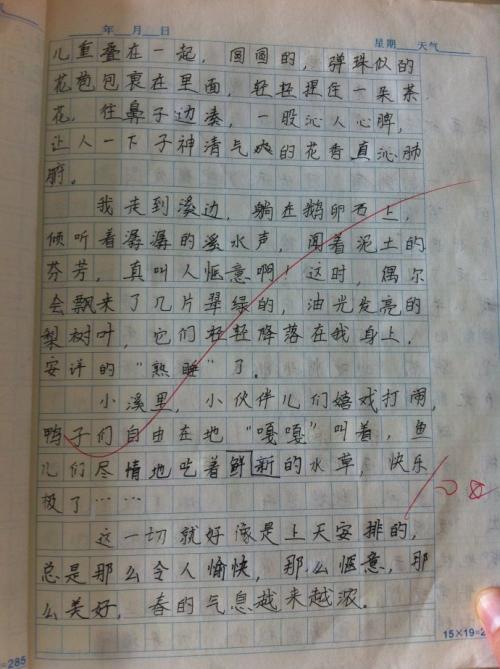 年 月 日 星期 天气
儿重叠在一起，圆圆的，弹珠似的
花苞包裹在里面，轻轻捏住一朵茶
花，往鼻子边凑，一股沁人心脾，
让人一下子神清气爽的花香直沁肺
腑。
我走到溪边，躺在鹅卵石上，
倾听着潺潺的溪水声，闻着泥土的
芬芳，真叫人惬意啊！这时，偶尔
会飘来了几片翠绿的，油光发亮的
梨树叶，它们轻轻降落在我身上，
安详的“熟睡”了。
小溪里，小伙伴儿们嬉戏打闹，
鸭子们自由在地“嘎嘎”叫着，鱼
儿们尽情地吃着鲜新的水草，快乐
极了……
这一切就好像是上天安排的，
总是那么令人愉快，那么惬意，那
么美好，春的气息越来越浓。
15×19=2
=285